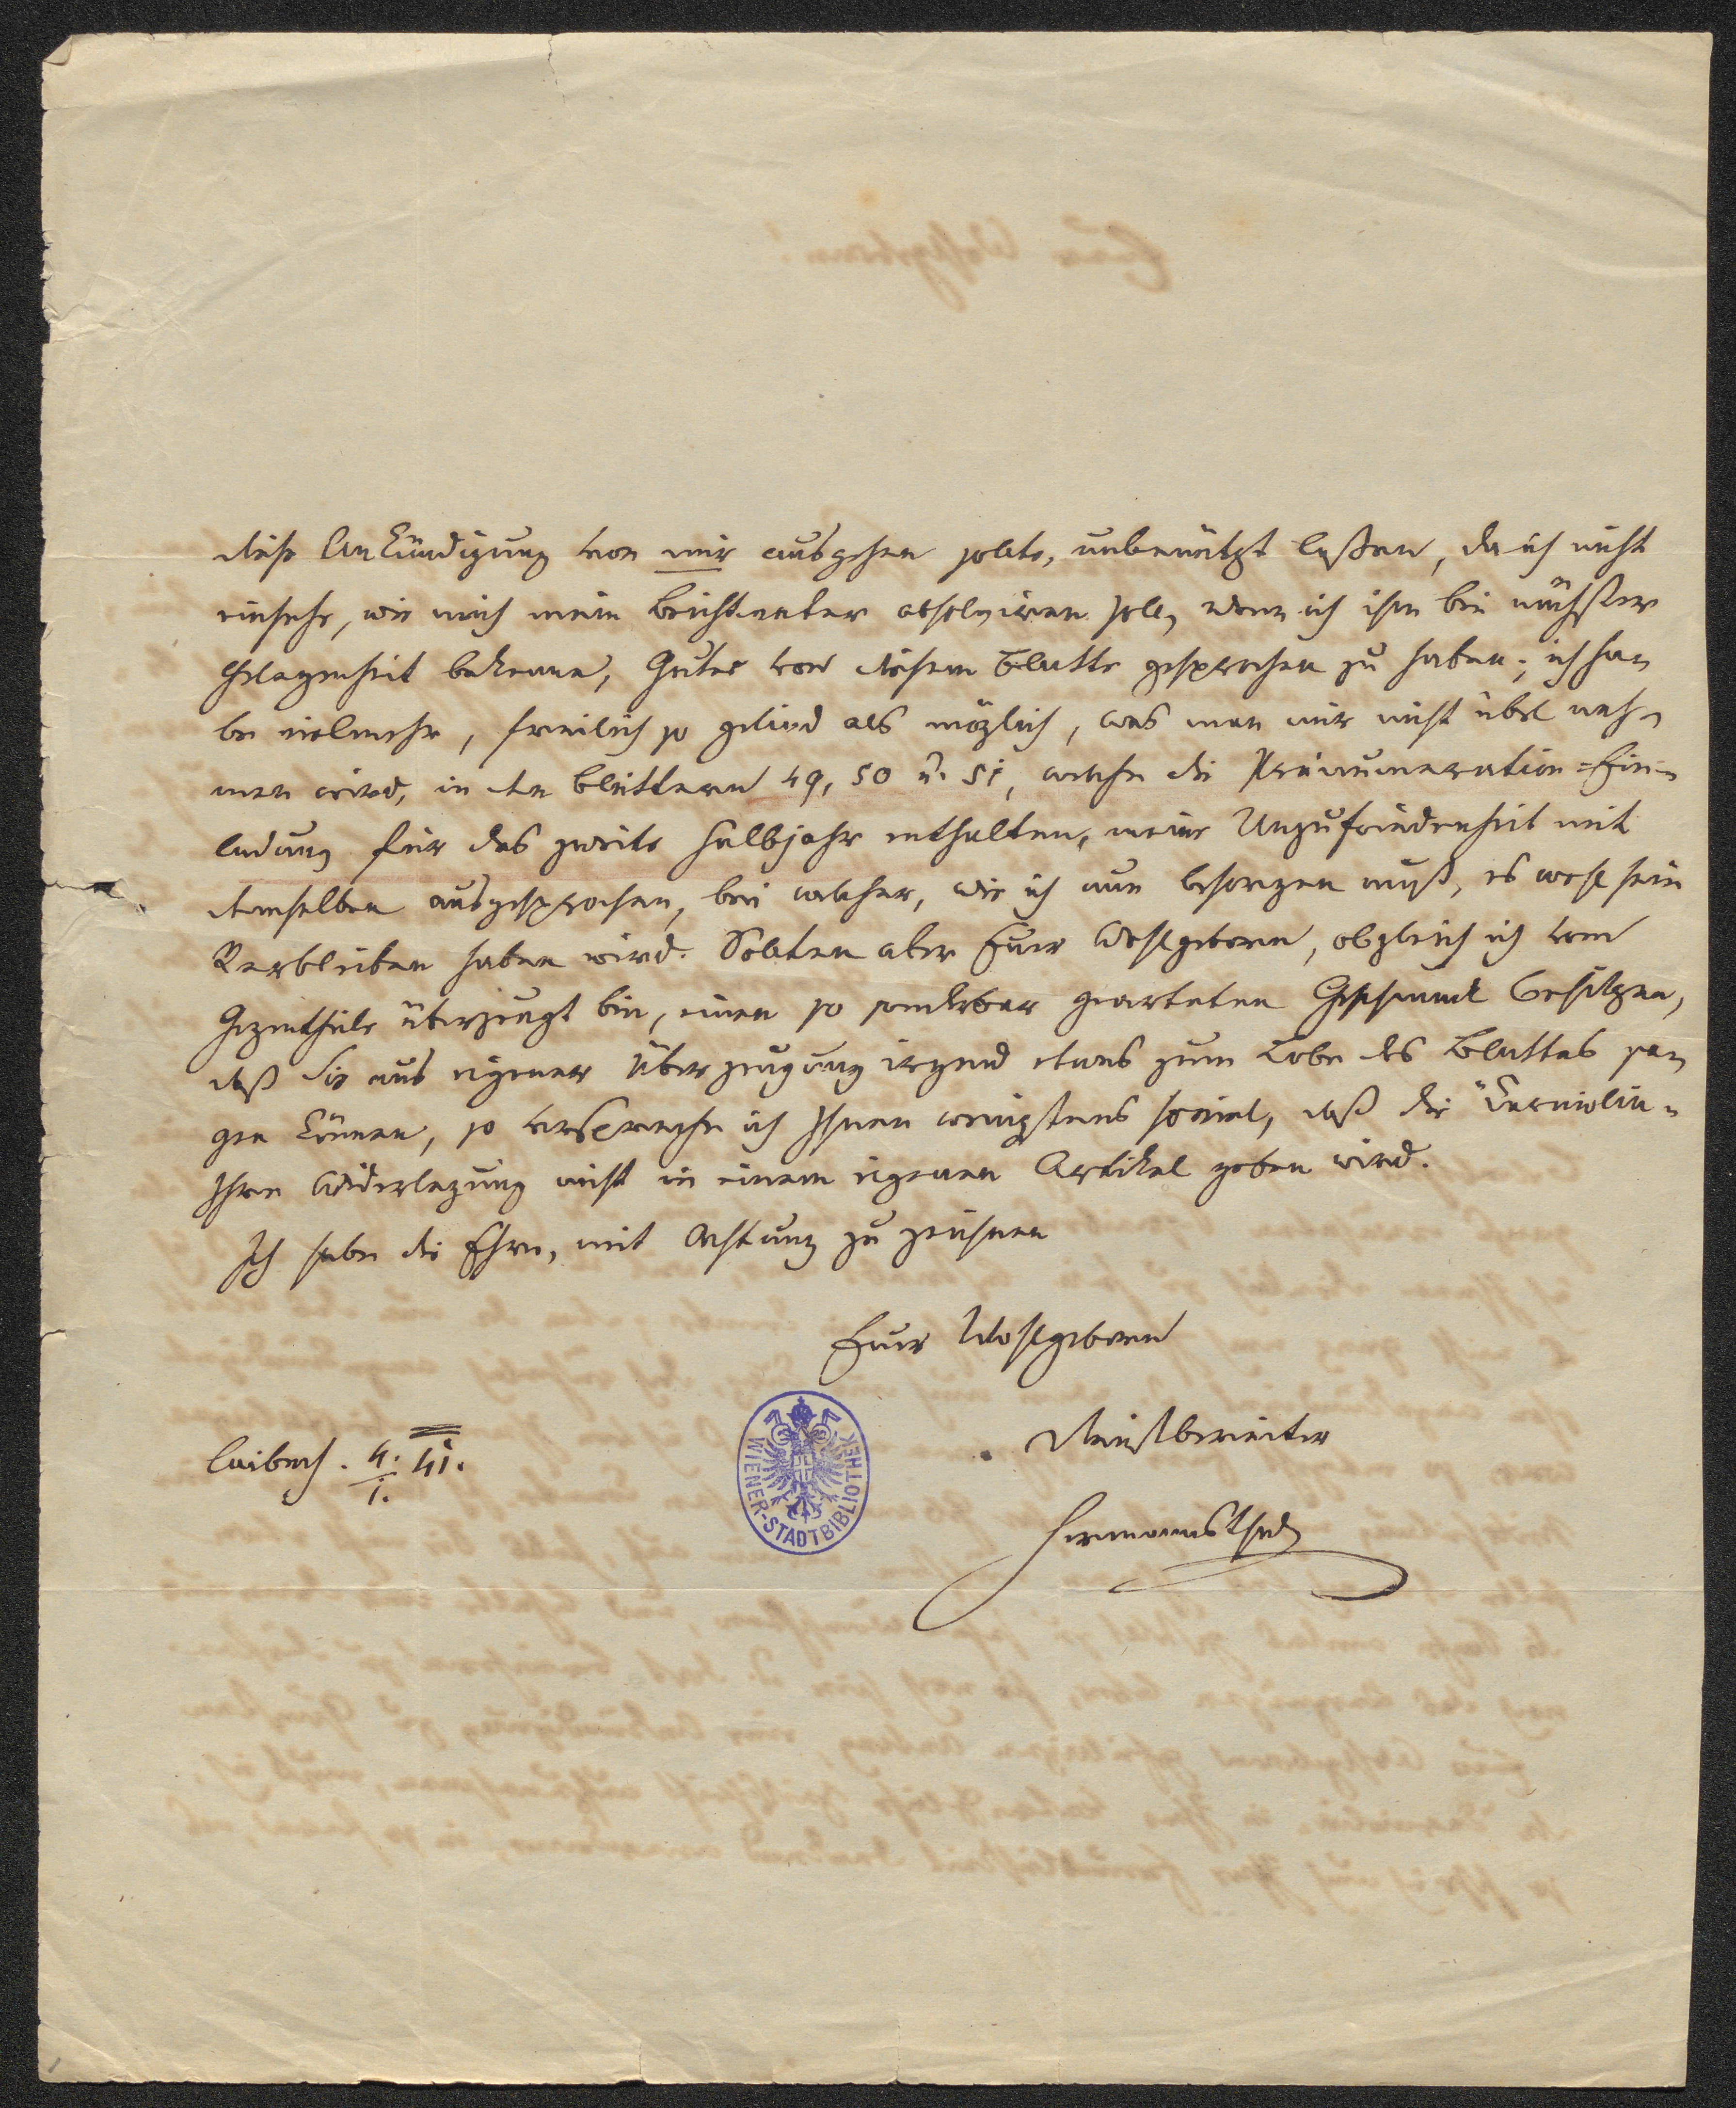 diese Ankündigung von mir ausgehen sollte, unbenützt laßen, da ich nicht
einsehe, wie mich mein Beichtvater absolviren soll, wenn ich ihm bei nächster
Gelegenheit bekenne, Gutes von diesem Blatte gesprochen zu haben; ich ha-
be vielmehr, freilich so gelind als möglich, was man mir nicht übel neh-
men wird, in den Blättern 49, 50 u. 51, welche die Pränumeration-Ein-
ladung für das zweite Halbjahr enthalten, meine Unzufriedenheit mit
demselben ausgesprochen, bei welcher, wie ich nun besorgen muß, es wohl sein
Verbleiben haben wird. Sollten aber Euer Wohlgeboren, obgleich ich vom
Gegentheile überzeugt bin, einen so sonderbar gearteten Geschmack besitzen,
daß Sie aus eigener Überzeugung irgend etwas zum Lobe des Blattes sa-
gen können, so verspreche ich Ihnen wenigstens soviel, daß die Carniolia
Ihre Widerlegung nicht in einem eigenen Artikel geben wird.
Ich habe die Ehre, mit Achtung zu zeichnen
Euer Wohlgeboren
Dienstbereiter
Laibach. 4./1. 41.
Hermannsthal
WIENER-STADTBIBLIOTHEK